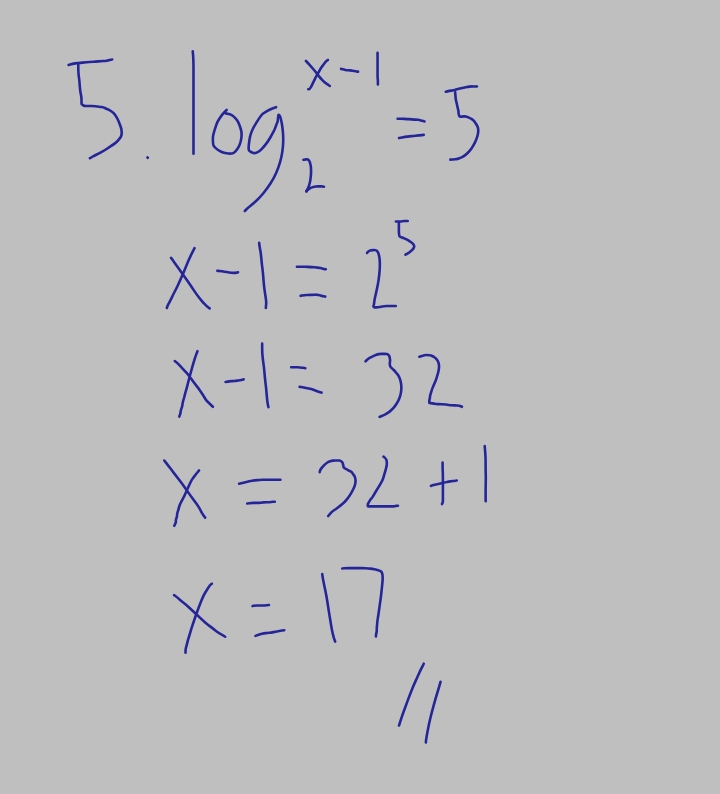 5. log₂ˣ⁻¹ = 5
x - 1 = 2⁵
x - 1 = 32
x = 32 + 1
x = 17
//